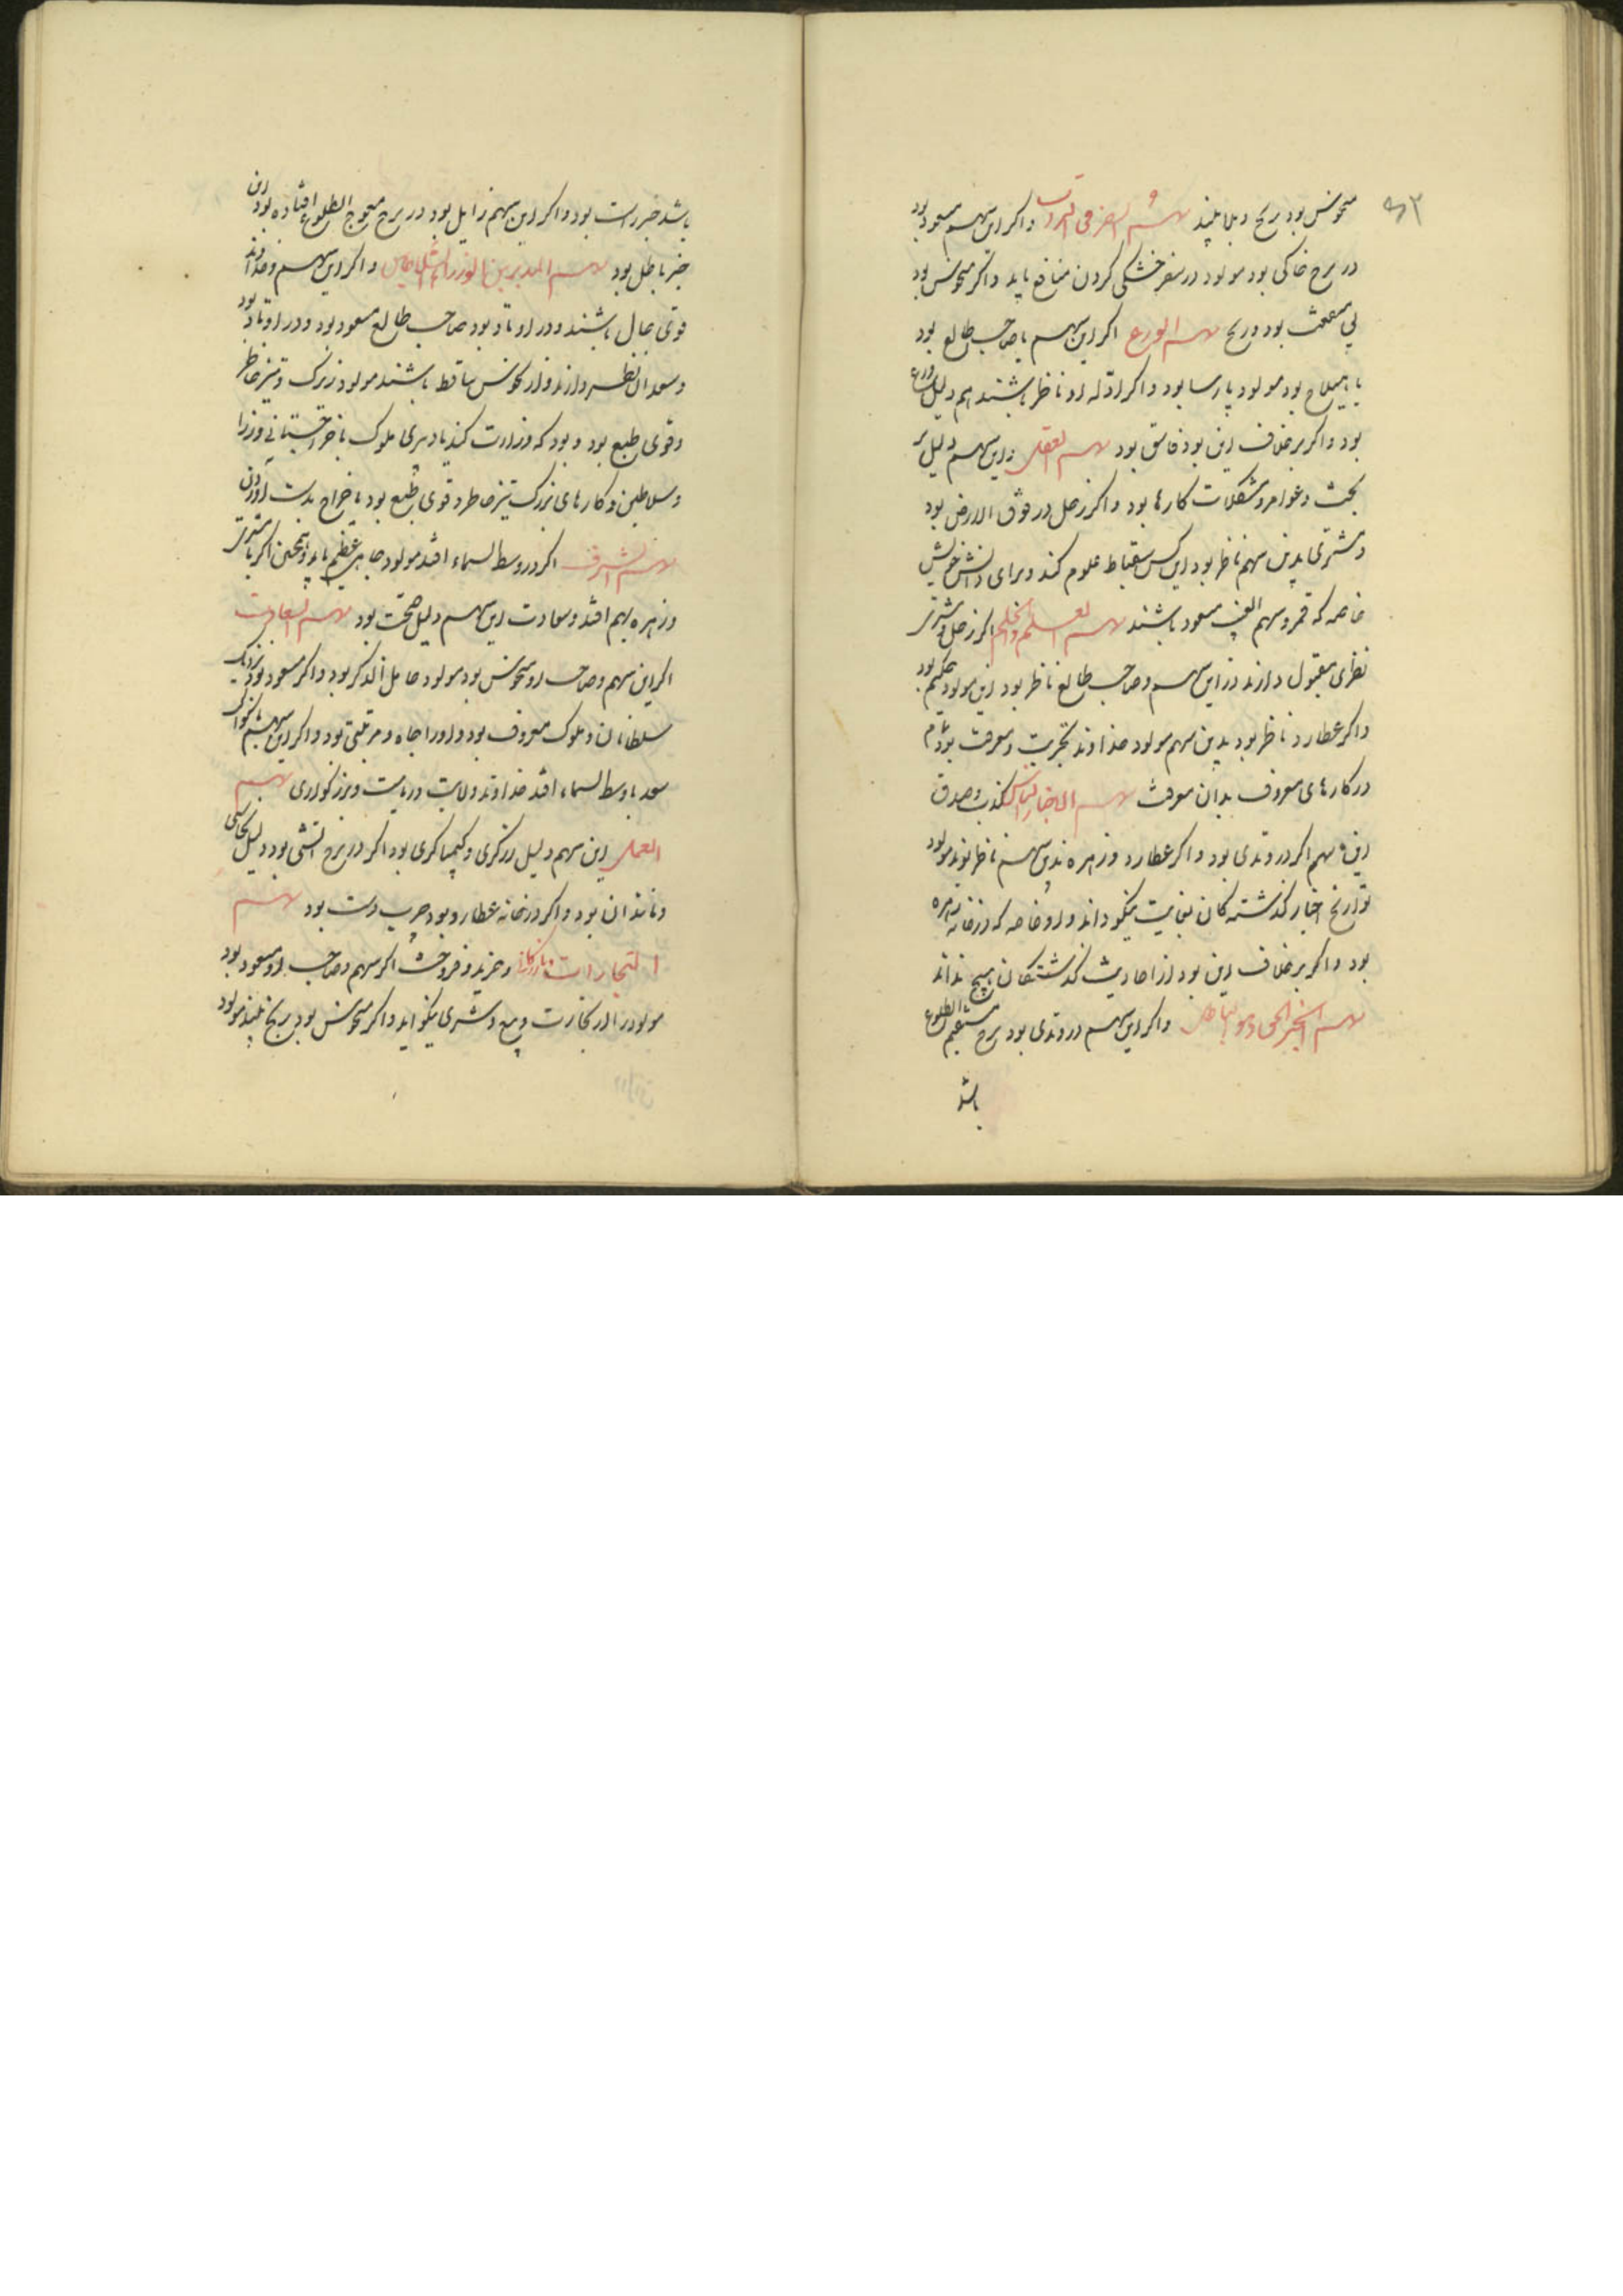 ۶۳
منحوس بود رنج و بلا بیند سهم السفر فی التراب واکر این سهم مسعود بود
در برج خاکی بود مولود در سفر خشکی کردن منافع یابد واکر منحوس بود
بی منفعت بود و رنج سهم الورع اکر این سهم با صاحب طالع بود
یا بهیلاج بود مولود پارسا بود واکر ادله او ناظر باشند هم دلیل ورع
بود واکر برخلاف این بود فاسق بود سهم العقل و این سهم دلیل بر
بحث و غوامض و مشکلات کارها بود واکر زحل در فوق الارض بود
و مشتری بدین سهم ناظر بود این کس استنباط علوم کند و برای دانش خویش
خاصه که قمر و سهم الغیب مسعود باشند سهم العلم والحلم اکر زحل و مشتری
نظری مقبول دارند در این سهم و صاحب طالع ناظر بود این مولود حکیم بود
واکر عطارد ناظر بود بدین سهم مولود خداوند تجربت و معرفت بود
در کارهای معروف بدان معرفت سهم الاخبار الناس کذب و صدق
این سهم اکر در وتدی بود واکر عطارد و زهره بدین سهم ناظر بوند مولود
تواریخ اخبار کذشتکان بغایت نیکو داند و او خاصه که در خانه زهره
بود واکر برخلاف این بود از احادیث کذشتکان هیچ نداند
سهم الخبر الحق او هو الباطل واکر این سهم در وتدی بود برج مستقیم الطلوع
باشد
باشد خبر راست بود واکر این سهم زایل بود در برج معوج الطلوع افتاده بود این
خبر باطل بود سهم المدبرین الوزراء والسلاطین واکر این سهم و خداوند
قوی حال باشند و در اوتاد بود صاحب طالع مسعود بود و در اوتاد بود
و سعدان نظر دارند و از نحوس ساقط باشند مولود زیرک و تیز خاطر
و قوی طبع بود و بود که وزارت کند یا دبیری ملوک با خراج ستانی وزرا
و سلاطین و کارهای بزرک تیز خاطر و قوی طبع بود با خراج بدست آوردن
سهم الشرف اکر در وسط السماء افتد مولود جاهی عظیم یابد و همچنین اکر با مشتری
و زهره بهم افتد و سعادت این سهم دلیل صحت بود سهم السعادت
اکر این سهم و صاحب او منحوس بود مولود خامل الذکر بود واکر مسعود بود نزدیک
سلطانان و ملوک معروف بود و او را جاه و مرتبتی بود واکر این سهم با کواکب
سعد با وسط السماء افتد خداوند ولایت و ریاست و بزرکواری سهم
العمل این سهم دلیل زرکری و کیمیاکری بود اکر در برج آتشی بود دلیل نحاسی
و مانند آن بود واکر در خانه عطارد بود چرب دست بود سهم
التجارات و بازرکانی و خرید و فروخت اکر سهم و صاحب او مسعود بود
مولود را در تجارت و بیع و شری نیکو آید واکر منحوس بود رنج بیند مولود